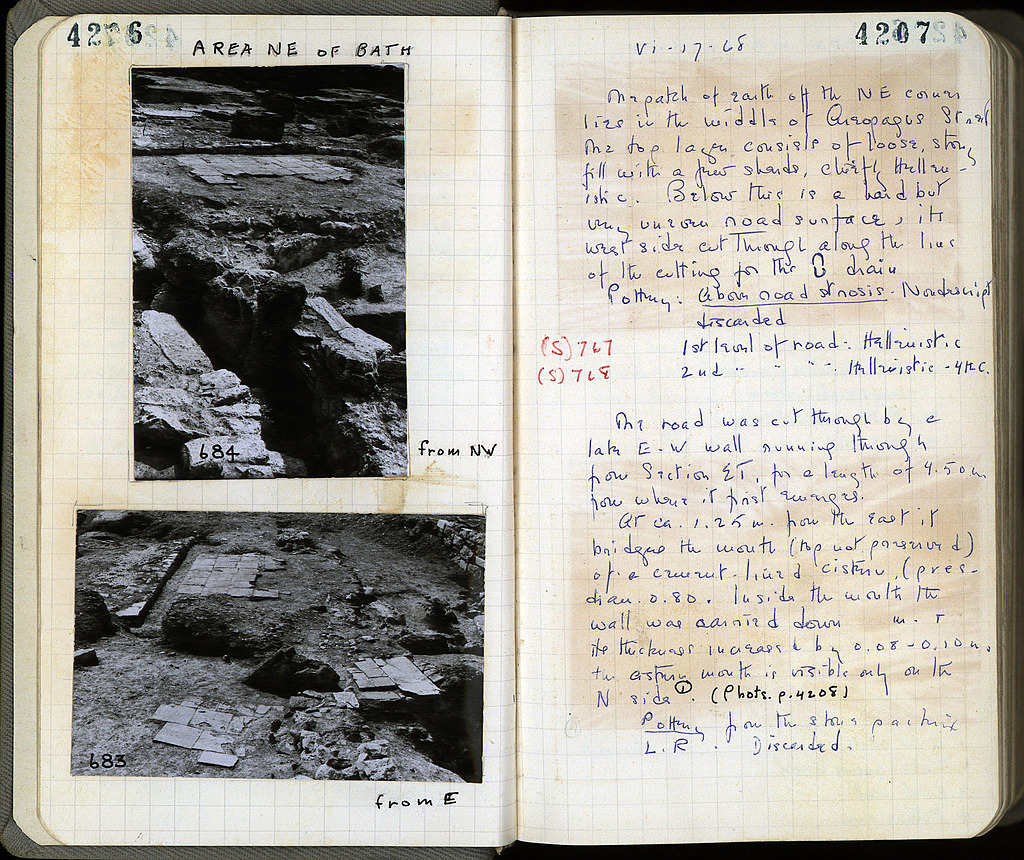 4206
AREA NE OF BATH
684
from NW
683
from E
4207
VI-17-68
The patch of earth off the NE corner
lies in the middle of Areopagus Street
The top layer consists of loose, stony
fill with a few sherds, chiefly Hellen-
istic. Below this is a hard but
very uneven road surface, its
west side cut through along the line
of the cutting for the drain
Pottery: Above road strosis - Nondescript
discarded
(S) 767 1st level of road: Hellenistic
(S) 768 2nd " " " Hellenistic - 4th c.
The road was cut through by a
late E-W wall running through
from Section ET, for a length of 4.50 m
from where it first emerges.
At ca. 1.25 m. from the East it
bridges the mouth (top not preserved)
of a cement-lined cistern, (pres-
diam. 0.80. Inside the mouth the
wall was carried down m.
its thickness increased by 0.08-0.10 m.
the cistern mouth is visible only on the
N side ①. (Phots. p. 4208)
Pottery from the stone packing
L.R. Discarded.